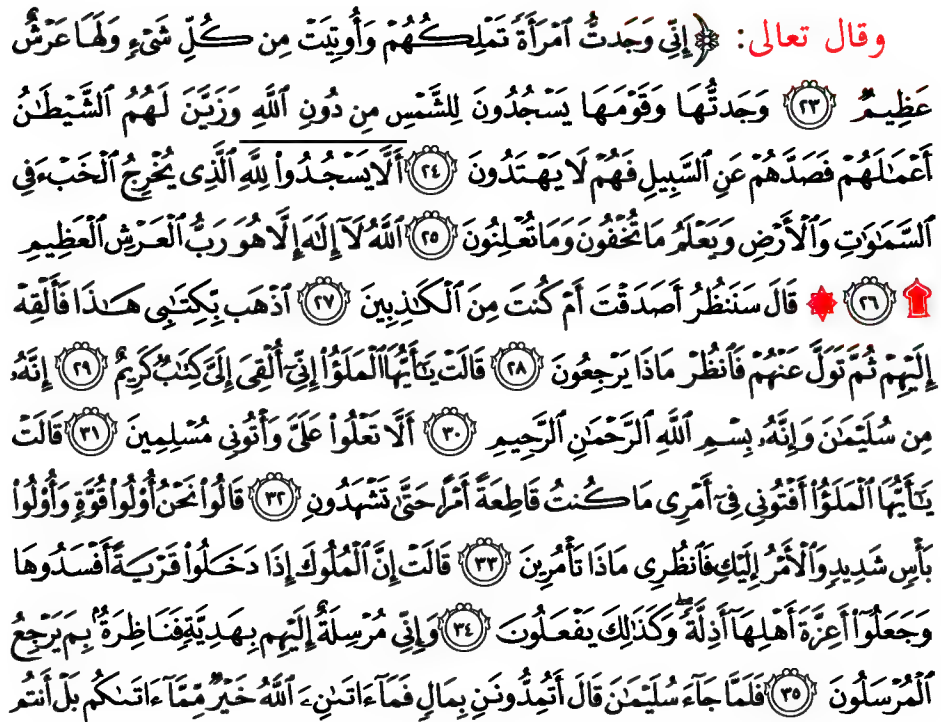 وقال تعالى: ﴿إِنِّي وَجَدتُّ ٱمْرَأَةً تَمْلِكُهُمْ وَأُوتِيَتْ مِن كُلِّ شَىْءٍ وَلَهَا عَرْشٌ
عَظِيمٌ ٢٣ وَجَدتُّهَا وَقَوْمَهَا يَسْجُدُونَ لِلشَّمْسِ مِن دُونِ ٱللَّهِ وَزَيَّنَ لَهُمُ ٱلشَّيْطَٰنُ
أَعْمَٰلَهُمْ فَصَدَّهُمْ عَنِ ٱلسَّبِيلِ فَهُمْ لَا يَهْتَدُونَ ٢٤ أَلَّا يَسْجُدُوا۟ لِلَّهِ ٱلَّذِى يُخْرِجُ ٱلْخَبْءَ فِى
ٱلسَّمَٰوَٰتِ وَٱلْأَرْضِ وَيَعْلَمُ مَا تُخْفُونَ وَمَا تُعْلِنُونَ ٢٥ ٱللَّهُ لَآ إِلَٰهَ إِلَّا هُوَ رَبُّ ٱلْعَرْشِ ٱلْعَظِيمِ
۩ ٢٦ ۞ قَالَ سَنَنظُرُ أَصَدَقْتَ أَمْ كُنتَ مِنَ ٱلْكَٰذِبِينَ ٢٧ ٱذْهَب بِّكِتَٰبِى هَٰذَا فَأَلْقِهْ
إِلَيْهِمْ ثُمَّ تَوَلَّ عَنْهُمْ فَٱنظُرْ مَاذَا يَرْجِعُونَ ٢٨ قَالَتْ يَٰٓأَيُّهَا ٱلْمَلَؤُا۟ إِنِّىٓ أُلْقِىَ إِلَىَّ كِتَٰبٌ كَرِيمٌ ٢٩ إِنَّهُۥ
مِن سُلَيْمَٰنَ وَإِنَّهُۥ بِسْمِ ٱللَّهِ ٱلرَّحْمَٰنِ ٱلرَّحِيمِ ٣٠ أَلَّا تَعْلُوا۟ عَلَىَّ وَأْتُونِى مُسْلِمِينَ ٣١ قَالَتْ
يَٰٓأَيُّهَا ٱلْمَلَؤُا۟ أَفْتُونِى فِىٓ أَمْرِى مَا كُنتُ قَاطِعَةً أَمْرًا حَتَّىٰ تَشْهَدُونِ ٣٢ قَالُوا۟ نَحْنُ أُو۟لُوا۟ قُوَّةٍ وَأُو۟لُوا۟
بَأْسٍ شَدِيدٍ وَٱلْأَمْرُ إِلَيْكِ فَٱنظُرِى مَاذَا تَأْمُرِينَ ٣٣ قَالَتْ إِنَّ ٱلْمُلُوكَ إِذَا دَخَلُوا۟ قَرْيَةً أَفْسَدُوهَا
وَجَعَلُوٓا۟ أَعِزَّةَ أَهْلِهَآ أَذِلَّةً ۖ وَكَذَٰلِكَ يَفْعَلُونَ ٣٤ وَإِنِّى مُرْسِلَةٌ إِلَيْهِم بِهَدِيَّةٍ فَنَاظِرَةٌۢ بِمَ يَرْجِعُ
ٱلْمُرْسَلُونَ ٣٥ فَلَمَّا جَآءَ سُلَيْمَٰنَ قَالَ أَتُمِدُّونَنِ بِمَالٍ فَمَآ ءَاتَىٰنِۦَ ٱللَّهُ خَيْرٌ مِّمَّآ ءَاتَىٰكُم بَلْ أَنتُم